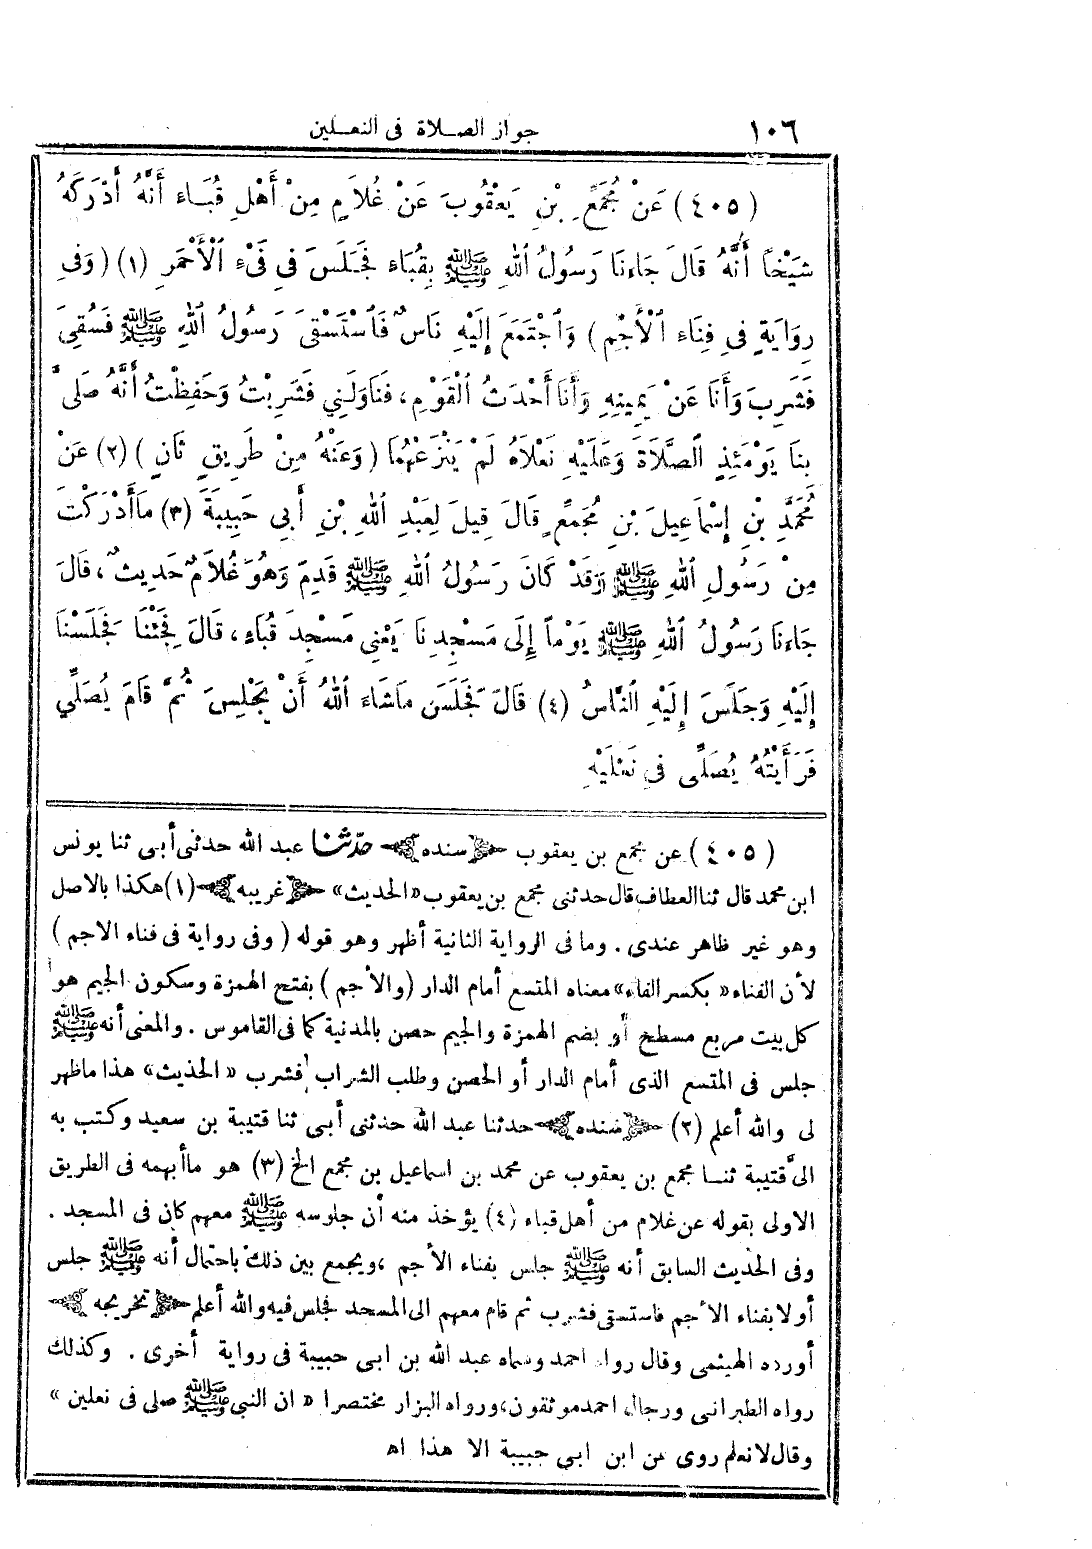 ١٠٦ جواز الصلاة فى النعلين
(٤٠٥) عَنْ مُجَمِّعِ بْنِ يَعْقُوبَ عَنْ غُلَامٍ مِنْ أَهْلِ قُبَاء أَنَّهُ أَدْرَكَهُ
شَيْخًا أَنَّهُ قَالَ جَاءَنَا رَسُولُ اللهِ ﷺ بِقُبَاء فَجَلَسَ فِي فَيْءِ الْأَحْمَرِ (١) (وَفِي
رِوَايَةٍ فِي فِنَاءِ الْأَجْمِ) وَاجْتَمَعَ إِلَيْهِ نَاسٌ فَاسْتَسْقَى رَسُولُ اللهِ ﷺ فَسُقِيَ
فَشَرِبَ وَأَنَا عَنْ يَمِينِهِ وَأَنَا أَحْدَثُ الْقَوْمِ، فَنَاوَلَنِي فَشَرِبْتُ وَحَفِظْتُ أَنَّهُ صَلَّى
بِنَا يَوْمَئِذٍ الصَّلَاةَ وَعَلَيْهِ نَعْلَاهُ لَمْ يَنْزِعْهُمَا (وَعَنْهُ مِنْ طَرِيقٍ ثَانٍ) (٢) عَنْ
مُحَمَّدِ بْنِ إِسْمَاعِيلَ بْنِ مُجَمِّعٍ قَالَ قِيلَ لِعَبْدِ اللهِ بْنِ أَبِي حَبِيبَةَ (٣) مَا أَدْرَكْتَ
مِنْ رَسُولِ اللهِ ﷺ وَقَدْ كَانَ رَسُولُ اللهِ ﷺ قَدِمَ وَهُوَ غُلَامٌ حَدِيثٌ، قَالَ
جَاءَنَا رَسُولُ اللهِ ﷺ يَوْمًا إِلَى مَسْجِدِنَا يَعْنِي مَسْجِدَ قُبَاءِ، قَالَ فَجِئْنَا فَجَلَسْنَا
إِلَيْهِ وَجَلَسَ إِلَيْهِ النَّاسُ (٤) قَالَ فَجَلَسَ مَا شَاءَ اللهُ أَنْ يَجْلِسَ ثُمَّ قَامَ يُصَلِّي
فَرَأَيْتُهُ يُصَلِّي فِي نَعْلَيْهِ
(٤٠٥) عن مجمع بن يعقوب ﴿سنده﴾ حدّثنا عبد الله حدثنى أبى ثنا يونس
ابن محمد قال ثنا العطاف قال حدثنى مجمع بن يعقوب «الحديث» ﴿غريبه﴾ (١) هكذا بالاصل
وهو غير ظاهر عندى . وما فى الرواية الثانية أظهر وهو قوله (وفى رواية فى فناء الاجم)
لأن الفناء «بكسر الفاء» معناه المتسع أمام الدار (والأجم) بفتح الهمزة وسكون الجيم هو
كل بيت مربع مسطح أو بضم الهمزة والجيم حصن بالمدنية كما فى القاموس . والمعنى أنه ﷺ
جلس فى المتسع الذى أمام الدار أو الحصن وطلب الشراب فشرب «الحذيث» هذا ماظهر
لى والله أعلم (٢) ﴿سنده﴾ حدثنا عبد الله حدثنى أبى ثنا قتيبة بن سعيد وكتب به
الىَّ قتيبة ثنا مجمع بن يعقوب عن محمد بن اسماعيل بن مجمع الخ (٣) هو ماأبهمه فى الطريق
الاولى بقوله عن غلام من أهل قباء (٤) يؤخذ منه أن جلوسه ﷺ معهم كان فى المسجد .
وفى الحديث السابق أنه ﷺ جلس بفناء الأجم ،ويجمع بين ذلك باحتمال أنه ﷺ جلس
أولا بفناء الأجم فاستسقى فشرب ثم قام معهم الى المسجد فجلس فيه والله أعلم ﴿تخريجه﴾
أورده الهيثمى وقال رواه احمد وسماه عبد الله بن ابى حبيبة فى رواية أخرى . وكذلك
رواه الطبرانى ورجال احمد موثقون،ورواه البزار مختصرا «ان النبى ﷺ صلى فى نعلين»
وقال لانعلم روى عن ابن ابى حبيبة الا هذا اه